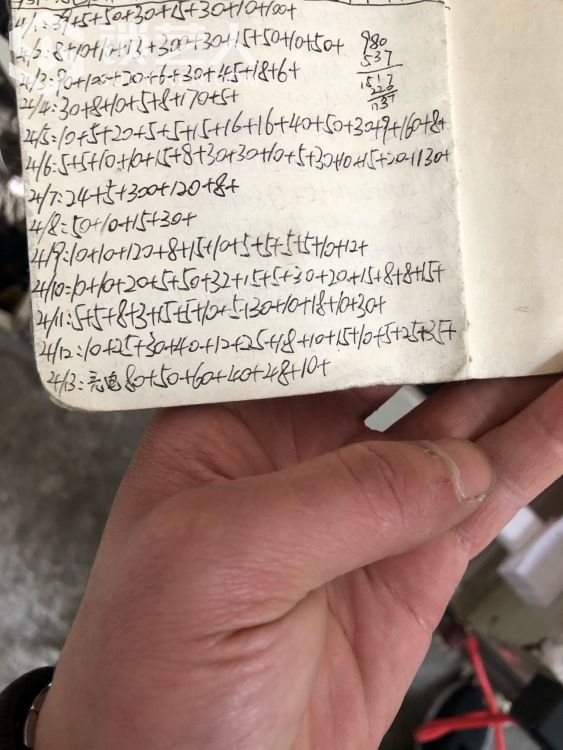 4/1:39+5+50+30+15+30+10+100+
4/2:8+10+10+13+300+30+15+50+10+50+
4/3:90+120+20+6+30+45+18+6+
4/4:30+8+10+5+8+170+5+
4/5:10+5+20+5+5+15+16+16+40+50+30+9+160+8+
4/6:5+5+10+10+15+8+30+30+10+5+30+10+15+20+130+
4/7:24+5+300+120+8+
4/8:50+10+15+30+
4/9:10+10+120+8+15+10+5+5+5+5+10+12+
4/10:10+10+20+5+50+32+15+5+30+20+15+8+8+15+
4/11:5+5+8+3+15+5+10+5+30+10+18+10+30+
4/12:10+25+30+40+12+25+18+10+15+10+5+25+35+
4/13:充电80+50+60+40+48+10+
980
537
1517
220
1737